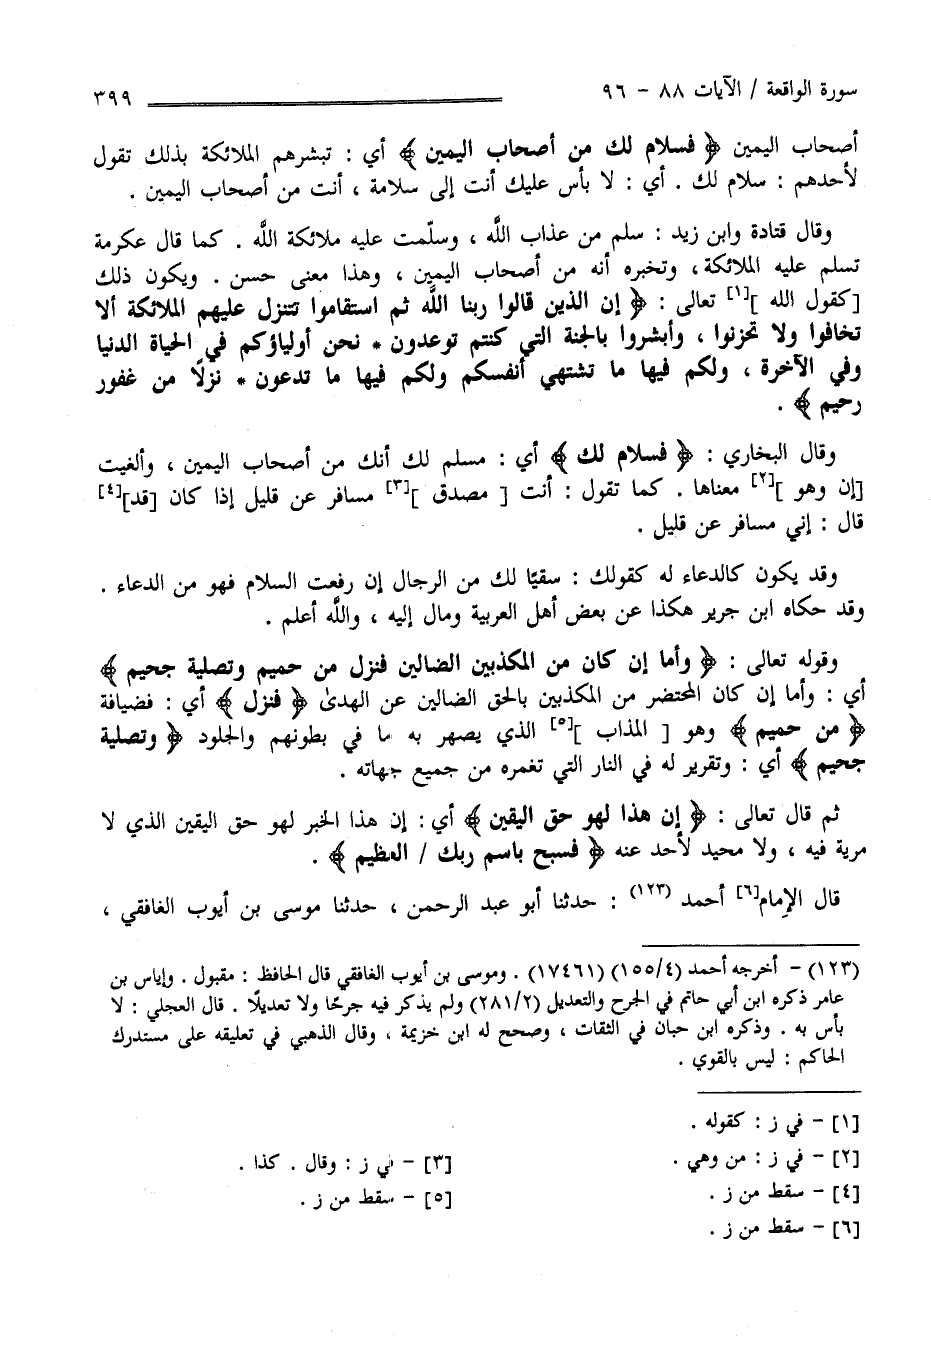 سورة الواقعة / الآيات ٨٨ - ٩٦ ٣٩٩
أصحاب اليمين ﴿ فسلام لك من أصحاب اليمين ﴾ أي : تبشرهم الملائكة بذلك تقول
لأحدهم : سلام لك . أي : لا بأس عليك أنت إلى سلامة ، أنت من أصحاب اليمين .
وقال قتادة وابن زيد : سلم من عذاب اللَّه ، وسلّمت عليه ملائكة اللَّه . كما قال عكرمة
تسلم عليه الملائكة، وتخبره أنه من أصحاب اليمين ، وهذا معنى حسن . ويكون ذلك
[كقول الله ][١] تعالى : ﴿ إن الذين قالوا ربنا اللَّه ثم استقاموا تتنزل عليهم الملائكة ألا
تخافوا ولا تحزنوا ، وأبشروا بالجنة التي كنتم توعدون * نحن أولياؤكم في الحياة الدنيا
وفي الآخرة ، ولكم فيها ما تشتهي أنفسكم ولكم فيها ما تدعون * نزلًا من غفور
رحيم ﴾ .
وقال البخاري : ﴿ فسلام لك ﴾ أي : مسلم لك أنك من أصحاب اليمين ، وألغيت
[إن وهو ][٢] معناها . كما تقول : أنت [ مصدق ][٣] مسافر عن قليل إذا كان [قد][٤]
قال : إني مسافر عن قليل .
وقد يكون كالدعاء له كقولك : سقيًا لك من الرجال إن رفعت السلام فهو من الدعاء .
وقد حكاه ابن جرير هكذا عن بعض أهل العربية ومال إليه ، واللَّه أعلم .
وقوله تعالى : ﴿ وأما إن كان من المكذبين الضالين فنزل من حميم وتصلية جحيم ﴾
أي : وأما إن كان المحتضر من المكذبين بالحق الضالين عن الهدىٰ ﴿ فنزل ﴾ أي : فضيافة
﴿ من حميم ﴾ وهو [ المذاب ][٥] الذي يصهر به ما في بطونهم والجلود ﴿ وتصلية
جحيم ﴾ أي : وتقرير له في النار التي تغمره من جميع جهاته .
ثم قال تعالى : ﴿ إن هذا لهو حق اليقين ﴾ أي: إن هذا الخبر لهو حق اليقين الذي لا
مرية فيه ، ولا محيد لأحد عنه ﴿ فسبح باسم ربك / العظيم ﴾ .
قال الإمام[٦] أحمد (١٢٣) : حدثنا أبو عبد الرحمن ، حدثنا موسى بن أيوب الغافقي ،
(١٢٣) - أخرجه أحمد (٤/ ١٥٥) (١٧٤٦١) . وموسى بن أيوب الغافقي قال الحافظ : مقبول . وإياس بن
عامر ذكره ابن أبي حاتم في الجرح والتعديل (٢/ ٢٨١) ولم يذكر فيه جرحًا ولا تعديلًا . قال العجلي : لا
بأس به . وذكره ابن حبان في الثقات ، وصحح له ابن خزيمة ، وقال الذهبي في تعليقه على مستدرك
الحاكم : ليس بالقوي .
[١] - في ز : كقوله .
[٢] - في ز : من وهي . [٣] - في ز : وقال . كذا .
[٤] - سقط من ز . [٥] - سقط من ز .
[٦] - سقط من ز .